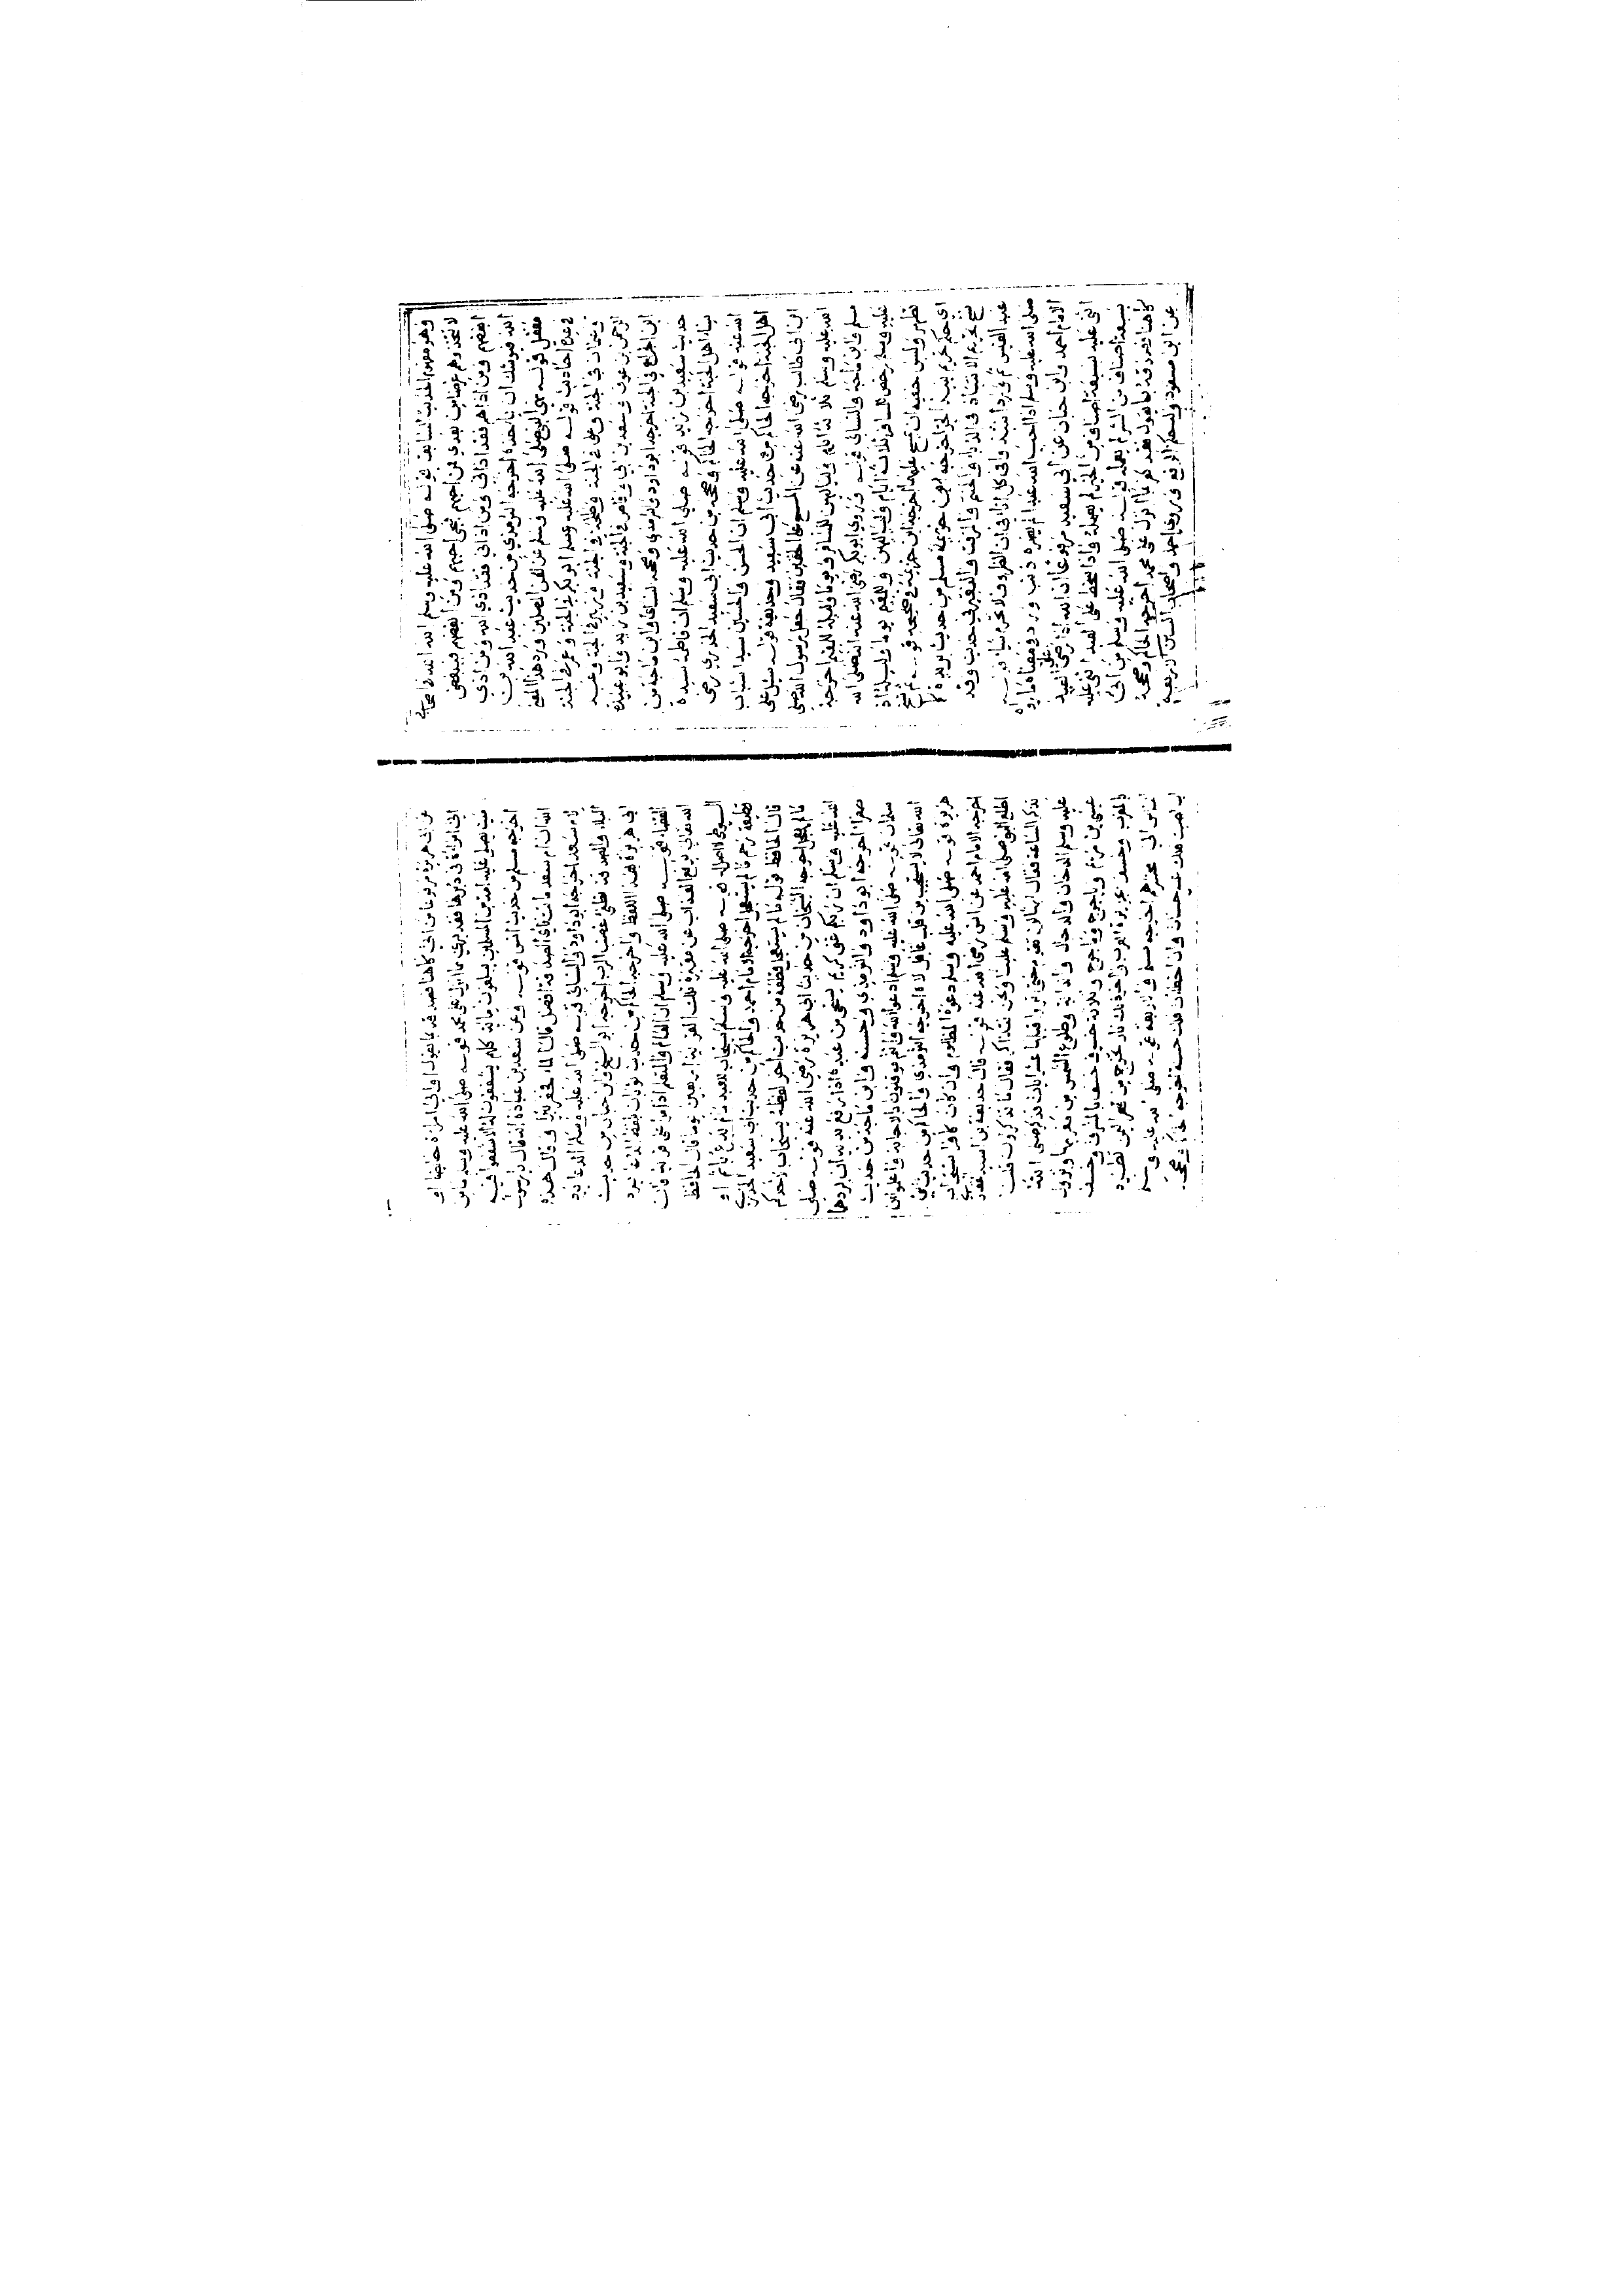 وهو مفهوم الحديث السابق قوله صلى الله عليه وسلم الله الله في اصحابي
لا تتخذوهم غرضا من بعدي فمن احبهم فبحبي احبهم ومن ابغضهم فببغضي
ابغضهم ومن اذاهم فقد اذاني ومن اذاني فقد اذى الله ومن اذى
الله فيوشك ان ياخذه اخرجه الترمذي من حديث عبد الله بن
مغفل قوله نهى النبي صلى الله عليه وسلم عن لعن المصلين ورد هذا المعنى
في عدة احاديث قوله صلى الله عليه وسلم ابو بكر في الجنة وعمر في الجنة
وعثمان في الجنة وعلي في الجنة وطلحة في الجنة والزبير في الجنة وعبد
الرحمن بن عوف وسعد بن ابي وقاص في الجنة وسعيد بن زيد وابو عبيدة
ابن الجراح في الجنة اخرجه ابو داود والترمذي وصححه والنسائي وابن ماجة من
حديث سعيد بن زيد قوله صلى الله عليه وسلم ان فاطمة سيدة
نساء اهل الجنة اخرجه الحاكم وصححه من حديث ابي سعيد الخدري رضي
الله عنه قوله صلى الله عليه وسلم ان الحسن والحسين سيدا شباب
اهل الجنة اخرجه الحاكم من حديث ابي سعيد وحذيفة قوله سئل علي
ابن ابي طالب رضي الله عنه عن المسح على الخفين فقال جعل رسول الله صلى
الله عليه وسلم ثلاثة ايام ولياليهن للمسافر ويوما وليلة للمقيم اخرجه
مسلم وابن ماجة والنسائي قوله وروى ابو بكر رضي الله عنه انه صلى الله
عليه وسلم رخص للمسافر ثلاثة ايام ولياليهن وللمقيم يوما وليلة اذا
تطهر ولبس خفيه ان يمسح عليهما اخرجه ابن خزيمة في صحيحه قوله ثم نسخ
اي حكم تحريم نبيذ الجر اخرجه مسلم من حديث بريدة
نسخ تحريم الانتباذ في الدباء والحنتم والمزفت والنقير في حديث وفد
عبد القيس ثم ورد انتبذوا في كل اناء فان الظروف لا تحرم شيئا قوله
صلى الله عليه وسلم اذا احب الله عبدا لم يضره ذنب ورد ومعناه ما رواه
الامام احمد وابن حبان عن ابي سعيد مرفوعا ان الله اذا رضي على العبد
اثنى عليه بسبعة اصناف من الخير لم يعمله واذا سخط على العبد اثنى عليه
بسبعة اصناف من الشر لم يعمله قوله صلى الله عليه وسلم من اتى
كاهنا فصدقه بما يقول فقد كفر بما انزل على محمد اخرجه الحاكم وصححه
عن ابن مسعود وله حكم الرفع وروى احمد واصحاب السنن الاربعة
عن ابي هريرة مرفوعا من اتى كاهنا فصدقه بما يقول او اتى امراة حائضا او
اتى امراة في دبرها فقد برئ مما انزل على محمد قوله صلى الله عليه وسلم ما من
ميت يصلي عليه امة من المسلمين يبلغون مائة كلهم يشفعون له الا شفعوا فيه
اخرجه مسلم من حديث انس قوله وعن سعد بن عبادة انه قال يا رسول
الله ان ام سعد ماتت فاي الصدقة افضل قال الماء فحفر بيرا وقال هذه
لام سعد اخرجه ابو داود والنسائي قوله صلى الله عليه وسلم الدعا يرد
البلاء والصدقة تطفئ غضب الرب اخرجه ابو الشيخ وابن حبان من حديث
ابي هريرة بهذا اللفظ واخرجه الحاكم من حديث ثوبان بلفظ الدعا يرد
القضاء قوله صلى الله عليه وسلم ان العالم والمتعلم اذا مرا على قرية فان
الله تعالى يرفع العذاب عن مقبرة تلك القرية اربعين يوما قال الحافظ
السيوطي لا اصل له قوله صلى الله عليه وسلم يستجاب للعبد ما لم يدع باثم او
قطيعة رحم ما لم يستعجل اخرجه الامام احمد والحاكم من حديث ابي سعيد الخدري
قال الحافظ قوله ما لم يستعجل قطعة من حديث اخر لفظه يستجاب لاحدكم
ما لم يعجل اخرجه الشيخان من حديث ابي هريرة رضي الله عنه قوله صلى
الله عليه وسلم ان ربكم كريم يستحي من عبده اذا رفع يديه ان يردهما
صفرا اخرجه ابو داود والترمذي وحسنه وابن ماجة من حديث
سلمان قوله صلى الله عليه وسلم ادعوا الله وانتم موقنون بالاجابة واعلموا ان
الله تعالى لا يستجيب من قلب غافل لاه اخرجه الترمذي والحاكم من حديث ابي
هريرة قوله صلى الله عليه وسلم دعوة المظلوم وان كان كافرا تستجاب
اخرجه الامام احمد عن انس رضي الله عنه قوله قال حذيفة بن اسيد الغفاري
اطلع النبي صلى الله عليه وسلم علينا ونحن نتذاكر فقال ما تذكرون قلنا
نذكر الساعة فقال انها لن تقوم حتى تروا قبلها عشر ايات فذكر صلى الله
عليه وسلم الدخان والدجال والدابة وطلوع الشمس من مغربها ونزول
عيسى بن مريم وياجوج وماجوج وثلاث خسوف خسف بالمشرق وخسف
بالمغرب وخسف بجزيرة العرب واخر ذلك نار تخرج من قعر اليمن تطرد
الناس الى محشرهم اخرجه مسلم والاربعة قوله صلى الله عليه وسلم
ان اصبت فلك عشر حسنات وان اخطات فلك حسنة اخرجه الحاكم وصححه